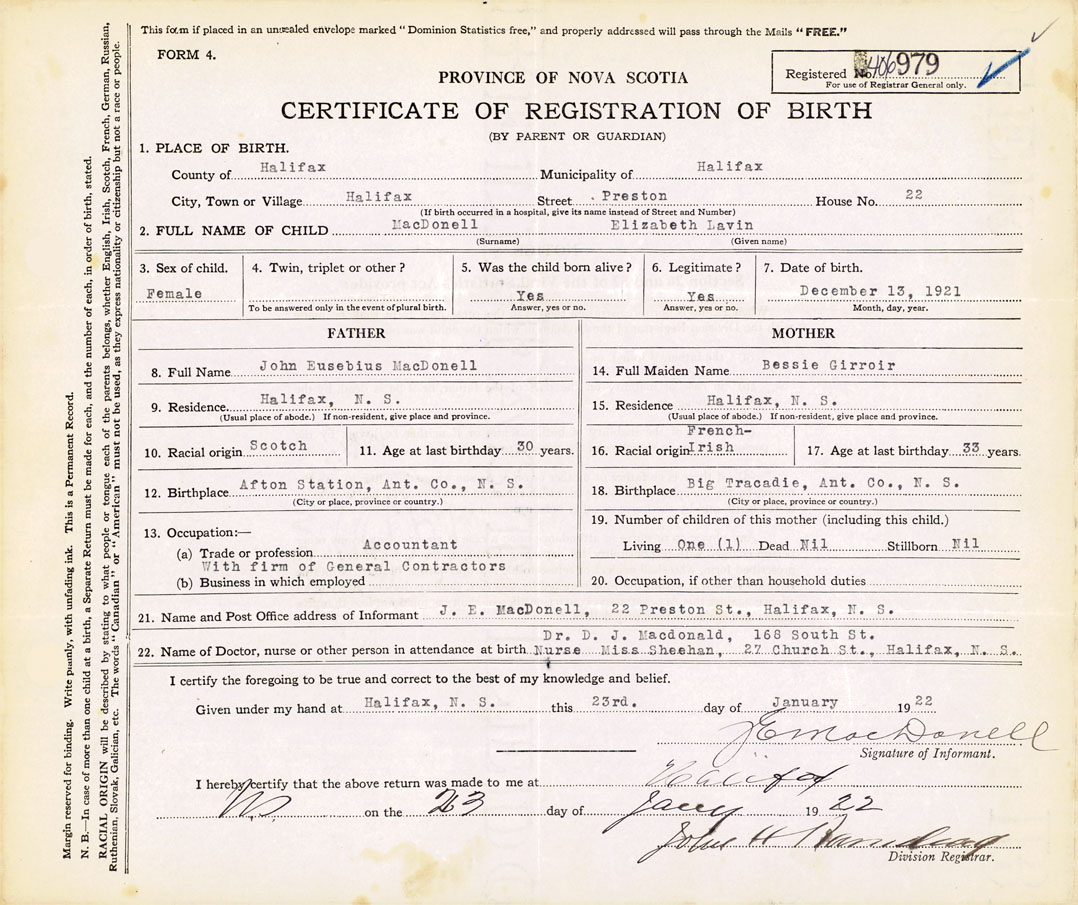 This form if placed in an unsealed envelope marked "Dominion Statistics free," and properly addressed will pass through the Mails "FREE."
FORM 4.
Registered No. 406979
For use of Registrar General only.
PROVINCE OF NOVA SCOTIA
CERTIFICATE OF REGISTRATION OF BIRTH
(BY PARENT OR GUARDIAN)
1. PLACE OF BIRTH.
County of Halifax Municipality of Halifax
City, Town or Village Halifax Street Preston House No. 22
(If birth occurred in a hospital, give its name instead of Street and Number)
2. FULL NAME OF CHILD MacDonell Elizabeth Lavin
(Surname) (Given name)
3. Sex of child. 4. Twin, triplet or other? 5. Was the child born alive? 6. Legitimate? 7. Date of birth.
Female Yes Yes December 13, 1921
To be answered only in the event of plural birth. Answer, yes or no. Answer, yes or no. Month, day, year.
FATHER
8. Full Name John Eusebius MacDonell
9. Residence Halifax, N. S.
(Usual place of abode.) If non-resident, give place and province.
10. Racial origin Scotch 11. Age at last birthday 30 years.
12. Birthplace Afton Station, Ant. Co., N. S.
(City or place, province or country.)
13. Occupation:—
(a) Trade or profession Accountant
With firm of General Contractors
(b) Business in which employed
MOTHER
14. Full Maiden Name Bessie Girroir
15. Residence Halifax, N. S.
(Usual place of abode.) If non-resident, give place and province.
French-
16. Racial origin Irish 17. Age at last birthday 33 years.
18. Birthplace Big Tracadie, Ant. Co., N. S.
(City or place, province or country.)
19. Number of children of this mother (including this child.)
Living One (1) Dead Nil Stillborn Nil
20. Occupation, if other than household duties
21. Name and Post Office address of Informant J. E. MacDonell, 22 Preston St., Halifax, N. S.
Dr. D. J. Macdonald, 168 South St.
22. Name of Doctor, nurse or other person in attendance at birth Nurse Miss Sheehan, 27 Church St., Halifax, N. S.
I certify the foregoing to be true and correct to the best of my knowledge and belief.
Given under my hand at Halifax, N. S. this 23rd. day of January 1922
J E MacDonell
Signature of Informant.
I hereby certify that the above return was made to me at Halifax
N.S. on the 23 day of Jany 1922
John H
Division Registrar.
Margin reserved for binding. Write plainly, with unfading ink. This is a Permanent Record.
N. B.—In case of more than one child at a birth, a Separate Return must be made for each, and the number of each, in order of birth, stated.
RACIAL ORIGIN will be described by stating to what people or tongue each of the parents belongs, whether English, Irish, Scotch, French, German, Russian,
Ruthenian, Slovak, Galician, etc. The words "Canadian" or "American" must not be used, as they express nationality or citizenship but not a race or people.